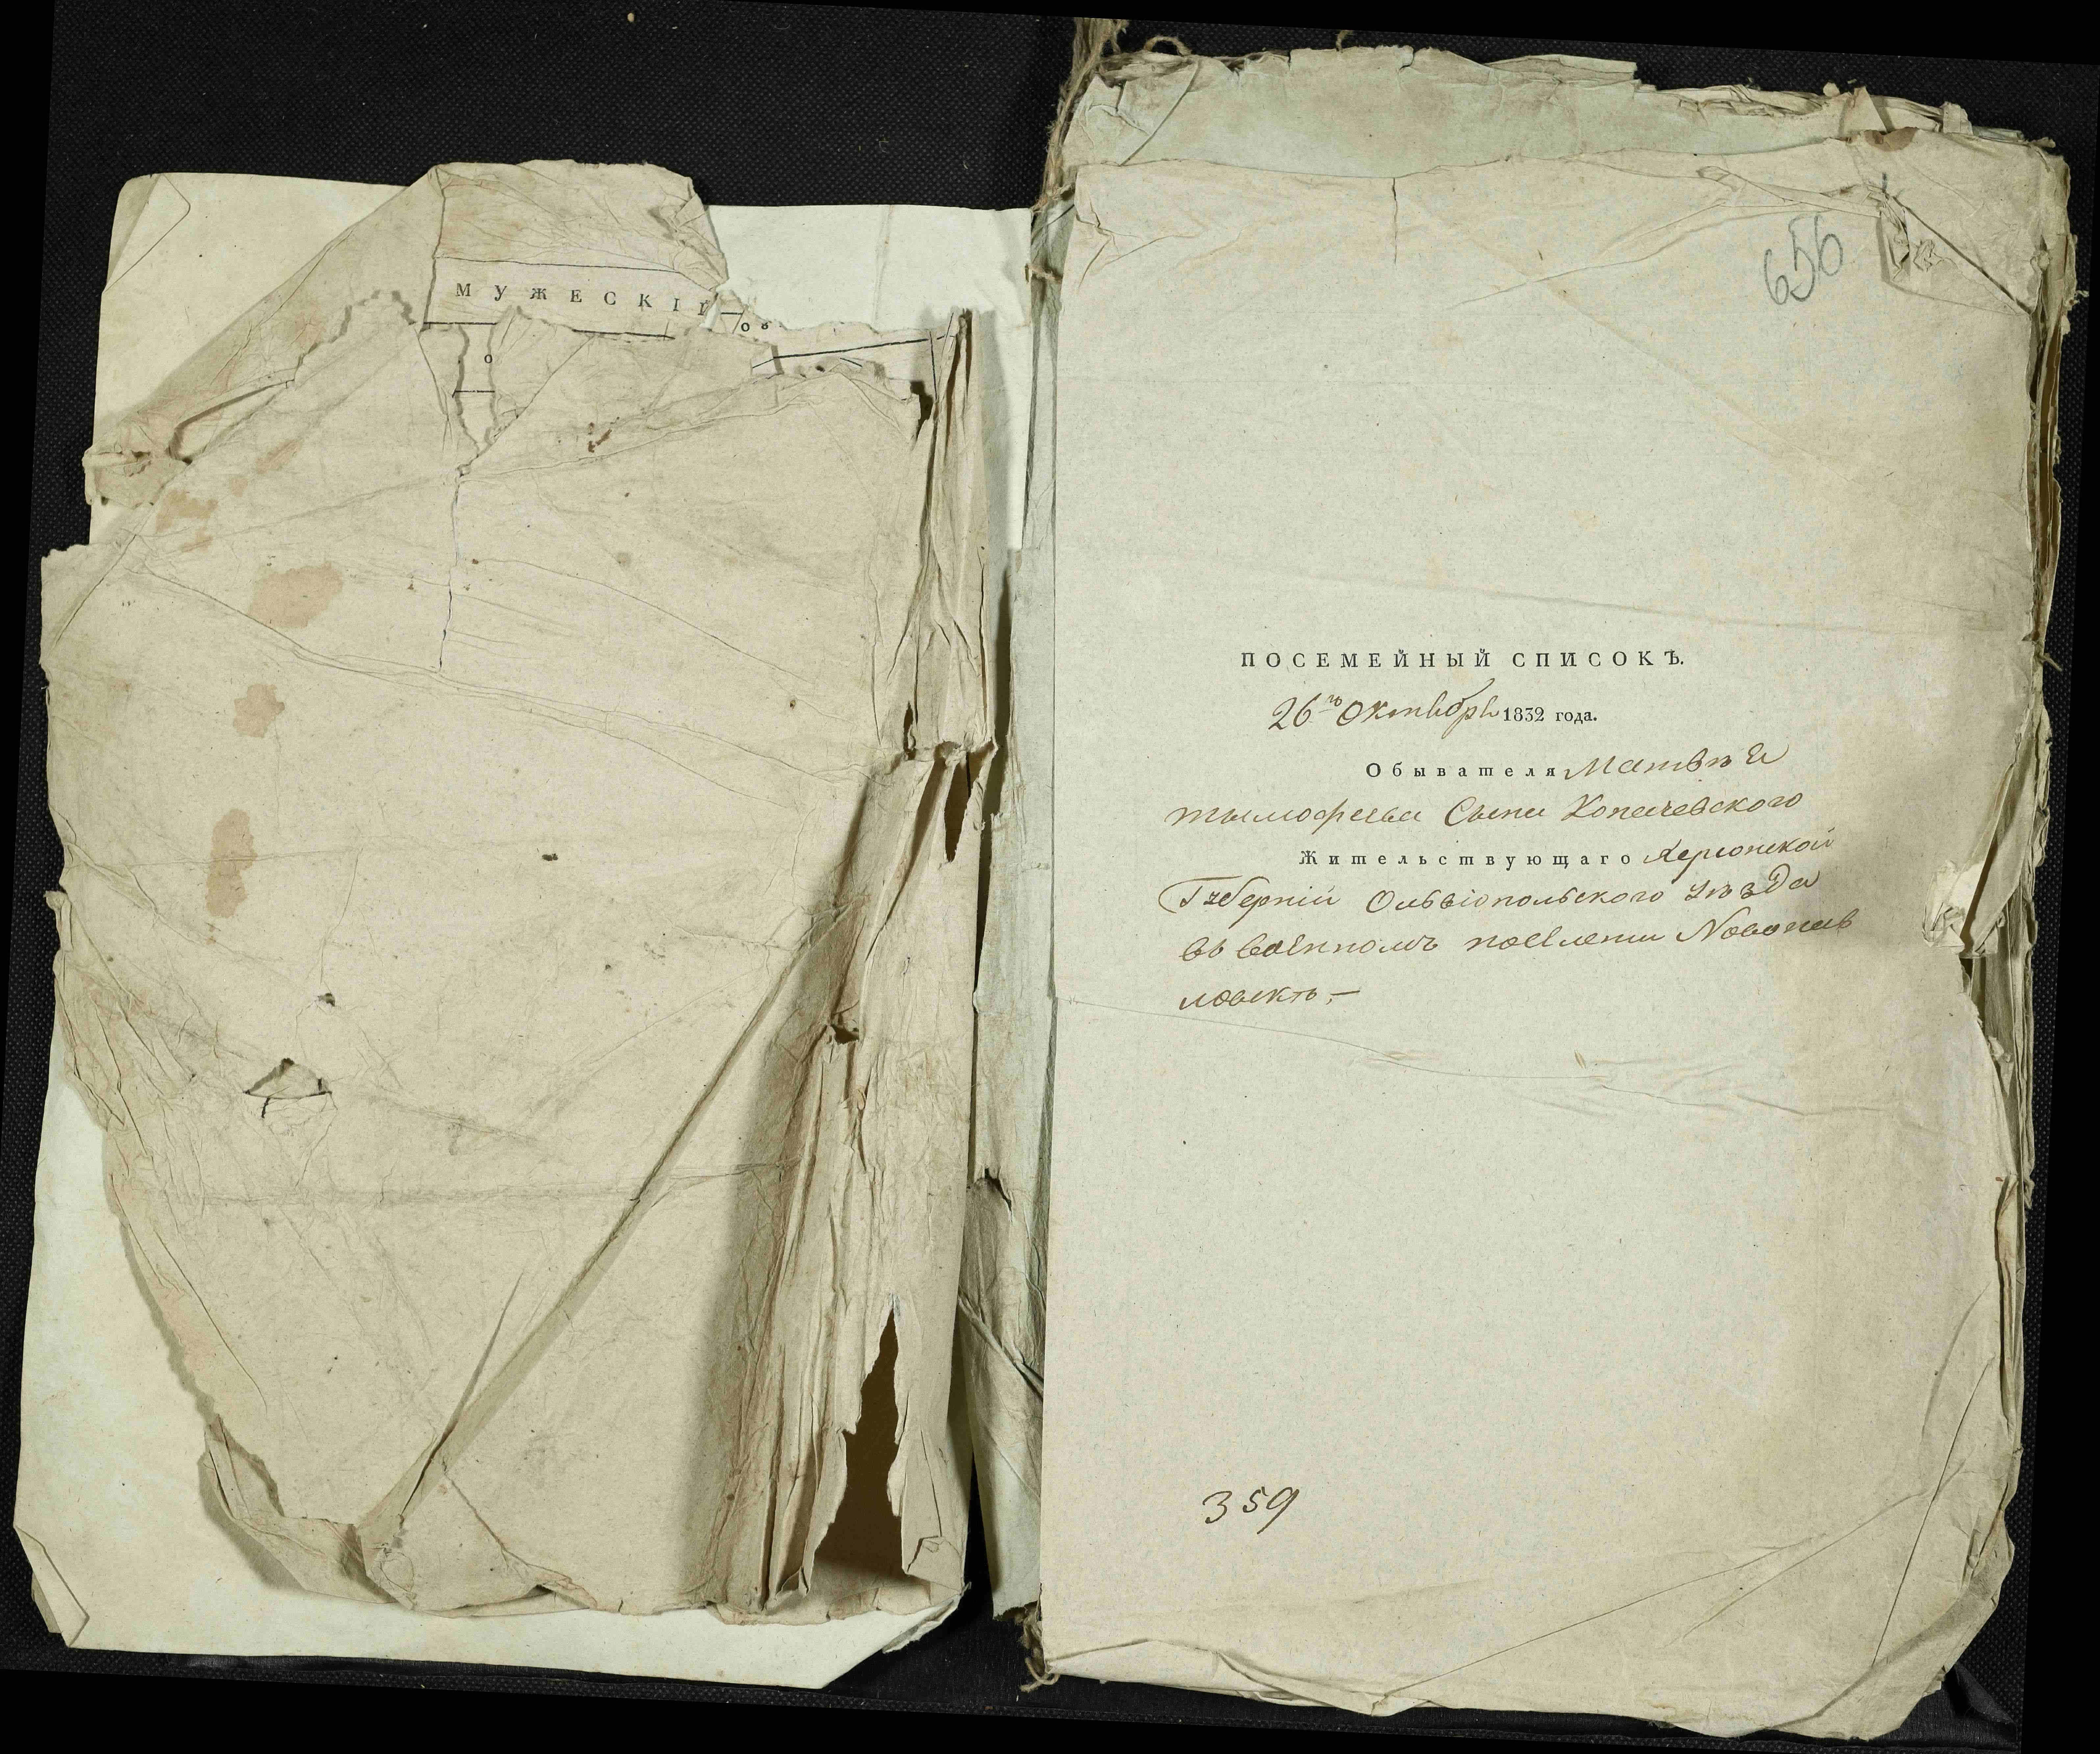 МУЖЕСКІЙ
о
656
ПОСЕМЕЙНЫЙ СПИСОКЪ.
26го Октября 1832 года.
Обывателя Матвѣя
тымофеева Сына Копачевского
Жительствующаго Херсонской
Губерніи Ольвіопольского уѣзда
въ военномъ поселении Новопав
ловкѣ,—
359